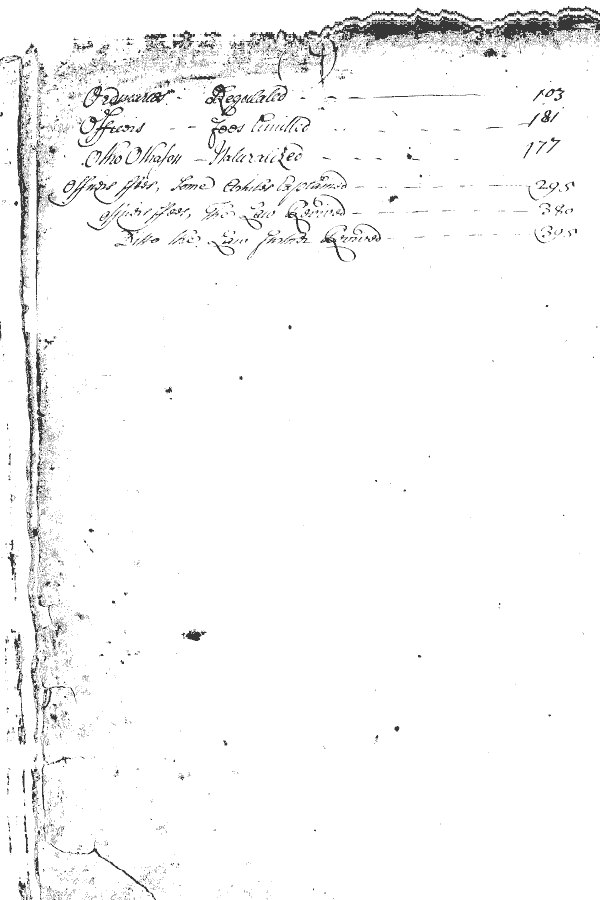 (4)
Ordinaries - Regulated - - - 103
Officers - - Fees limitted - - - 181
Otho Othason - Naturalized - - - 177
Officers ffees, Some Articles Explained - - - 295
officers ffees, the Law Revived - - - 380
Ditto the Law further Revived - - - 395